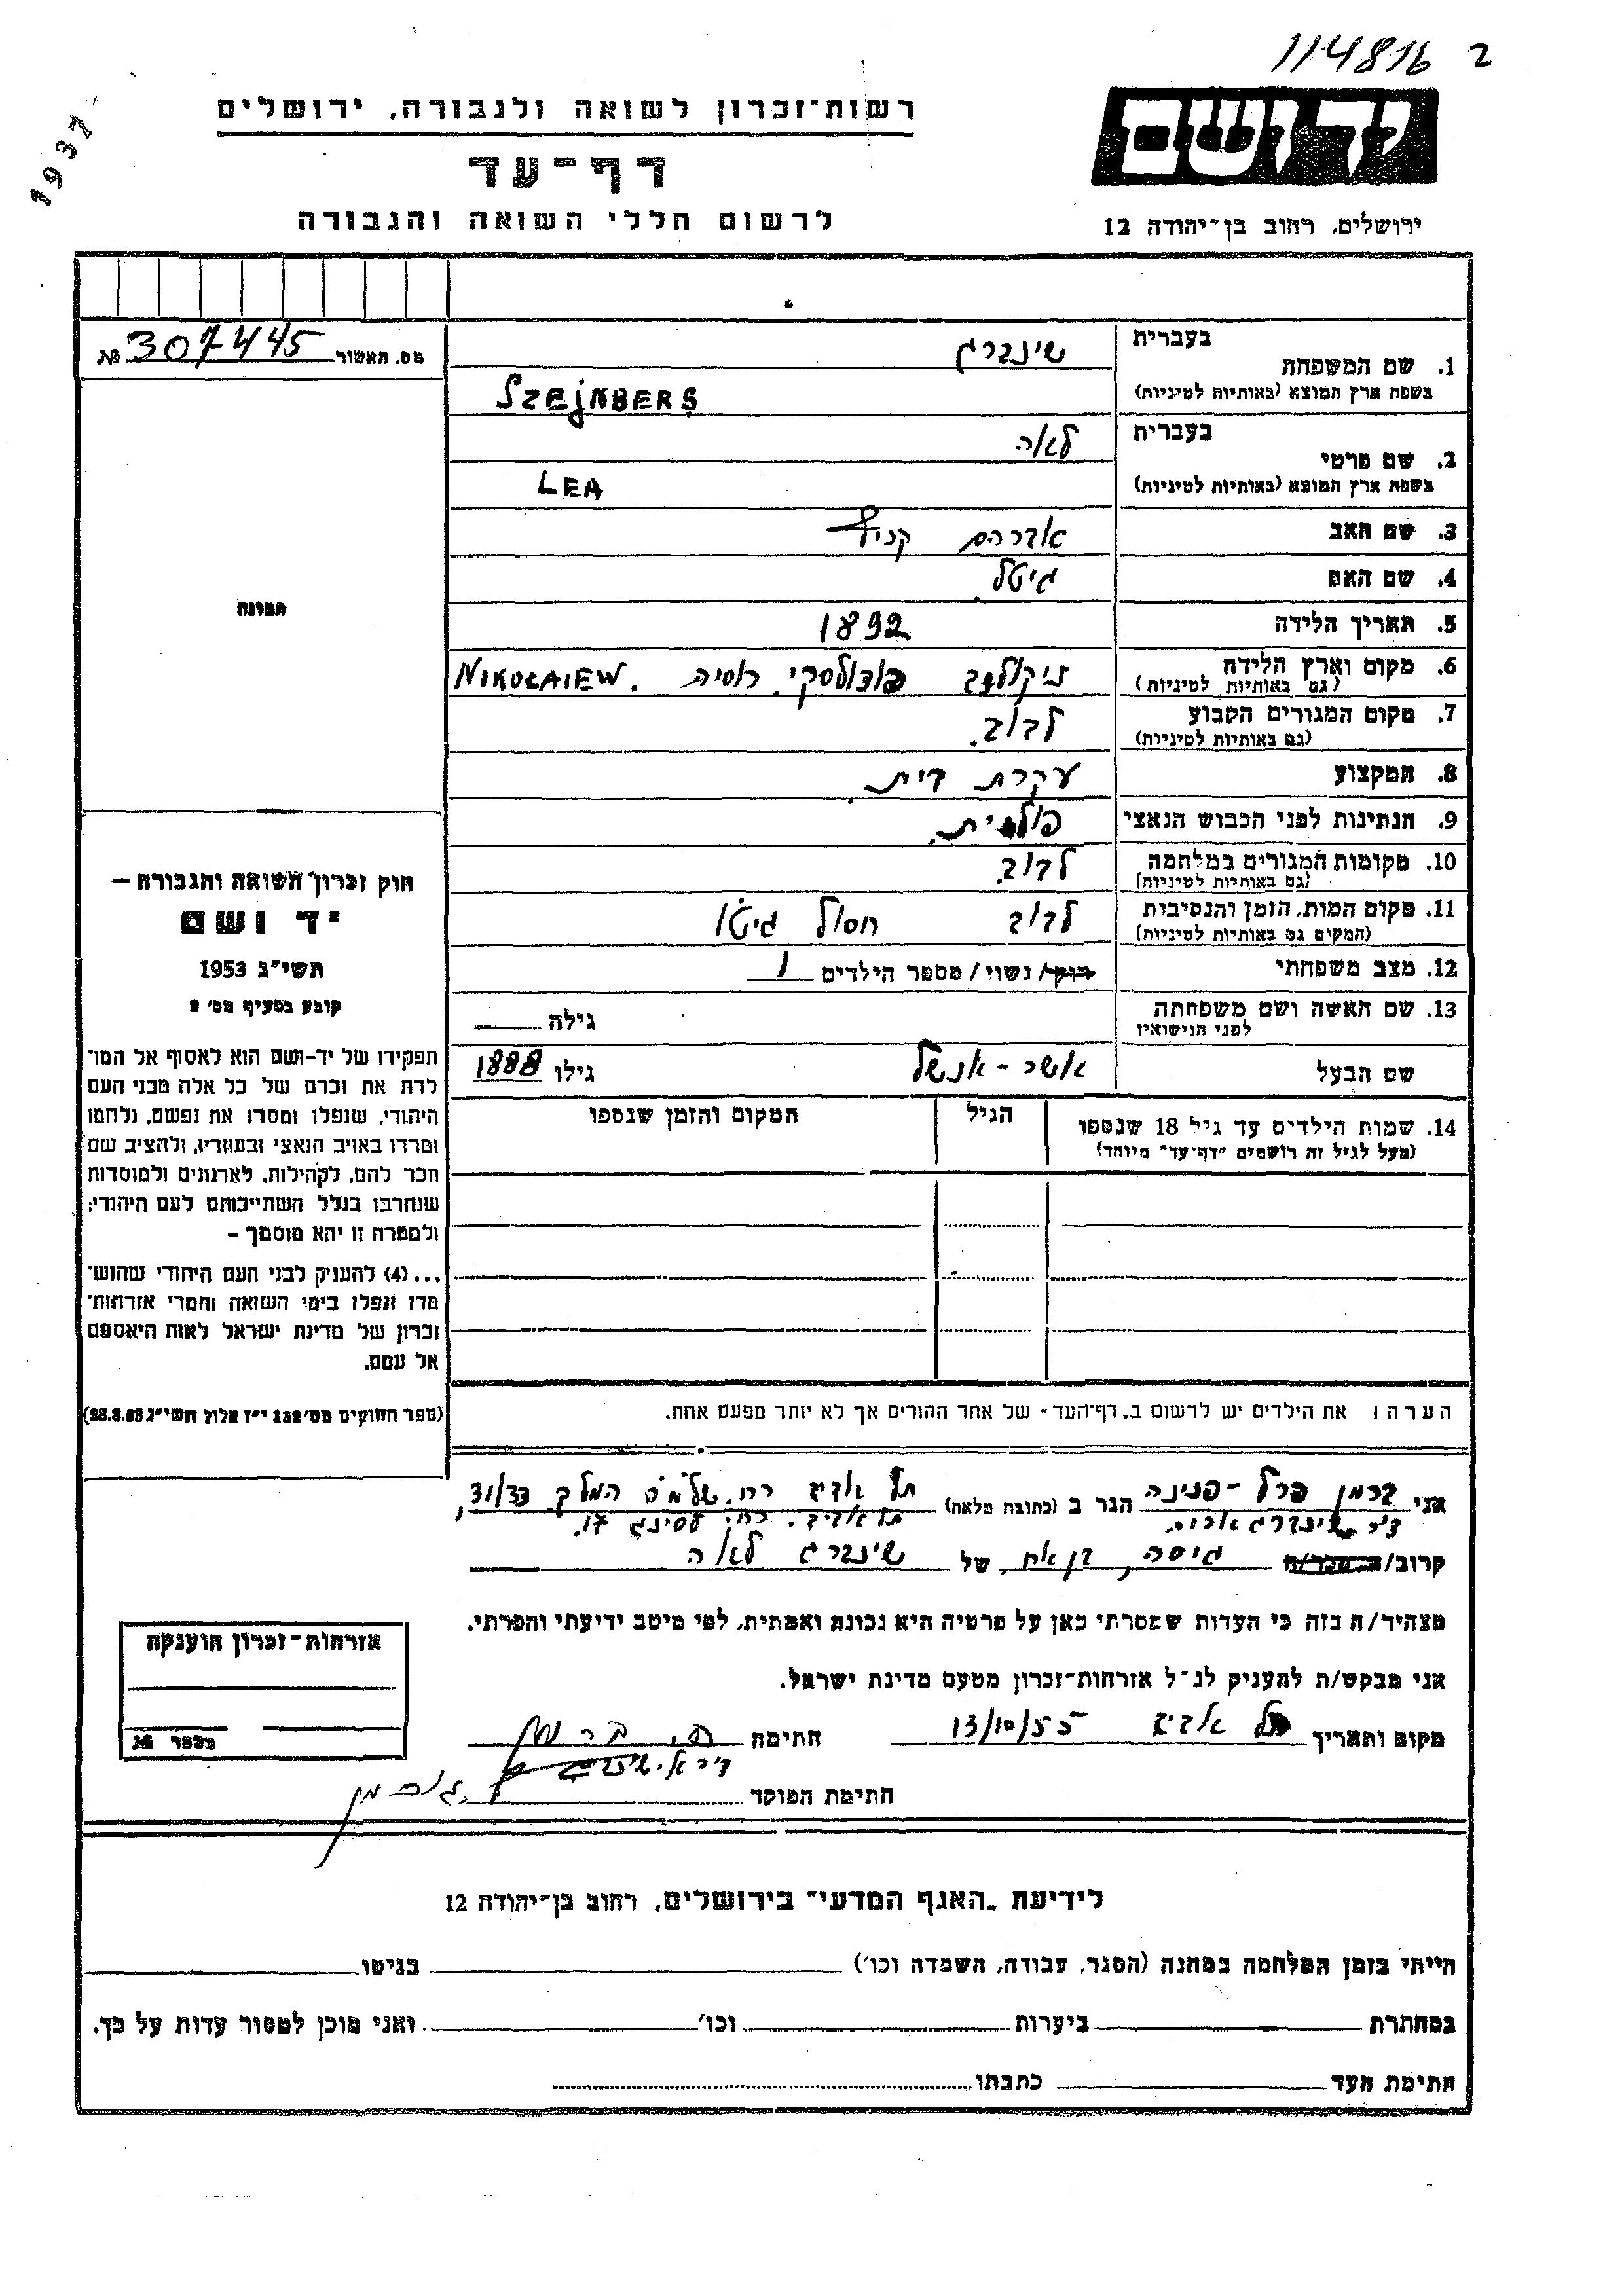 114816 2
1937
יד ושם
ירושלים, רחוב בן־יהודה 12
רשות־זכרון לשואה ולגבורה, ירושלים
דף־עד
לרשום חללי השואה והגבורה
מס. האשור 307445 №
תמונה
חוק זכרון השואה והגבורה —
יד ושם
תשי״ג 1953
קובע בסעיף מס׳ 2
תפקידו של יד-ושם הוא לאסוף אל המו־
לדת את זכרם של כל אלה מבני העם
היהודי, שנפלו ומסרו את נפשם, נלחמו
ומרדו באויב הנאצי ובעוזריו, ולהציב שם
וזכר להם, לקהילות, לארגונים ולמוסדות
שנחרבו בגלל השתייכותם לעם היהודי;
ולמטרה זו יהא מוסמך —
...(4) להעניק לבני העם היהודי שהוש־
מדו ונפלו בימי השואה והמרי אזרחות־
זכרון של מדינת ישראל לאות היאספם
אל עמם.
(ספר החוקים מס׳ 132 י״ז אלול תשי״ג 28.8.53)
1. שם המשפחה בעברית שינברג
בשפת ארץ המוצא (באותיות לטיניות) SZEJNBERG
2. שם פרטי בעברית לאה
בשפת ארץ המוצא (באותיות לטיניות) LEA
3. שם האב אברהם
4. שם האם גיטל
5. תאריך הלידה 1892
6. מקום וארץ הלידה ניקולייב פודולסקי. רוסיה. NIKOŁAIEW
(גם באותיות לטיניות)
7. מקום המגורים הקבוע לבוב.
(גם באותיות לטיניות)
8. המקצוע עקרת בית.
9. הנתינות לפני הכבוש הנאצי פולנית.
10. מקומות המגורים במלחמה לבוב.
(גם באותיות לטיניות)
11. מקום המות, הזמן והנסיבות לבוב חסול גיטו
(המקום גם באותיות לטיניות)
12. מצב משפחתי רווק/נשוי/מספר הילדים 1
13. שם האשה ושם משפחתה גילה
לפני הנישואין
שם הבעל אשר-אנשל גילו 1888
14. שמות הילדים עד גיל 18 שנספו הגיל המקום והזמן שנספו
(מעל לגיל זה רושמים "דף־עד" מיוחד)
הערה: את הילדים יש לרשום ב„דף־העד" של אחד ההורים אך לא יותר מפעם אחת.
אני ברמן פרל-פנינה הגר ב (כתובת מלאה) תל אביב רח. שלמה המלך 31/33,
ד״ר שינברג תל אביב. רח. לסינג 17.
קרוב/ה מכר/ה גיסה, בן אח, של שינברג לאה
מצהיר/ה בזה כי העדות שמסרתי כאן על פרטיה היא נכונה ואמתית, לפי מיטב ידיעתי והכרתי.
אני מבקש/ת להעניק לנ״ל אזרחות־זכרון מטעם מדינת ישראל.
מקום ותאריך תל אביב 13/10/55 חתימה פ. ברמן
חתימת הפוקד
אזרחות־זכרון הוענקה
מספר №
לידיעת „האגף המדעי" בירושלים, רחוב בן־יהודה 12
הייתי בזמן המלחמה במחנה (הסגר, עבודה, השמדה וכו׳) בגיטו
במחתרת ביערות וכו׳ ואני מוכן למסור עדות על כך.
חתימת העד כתבתו